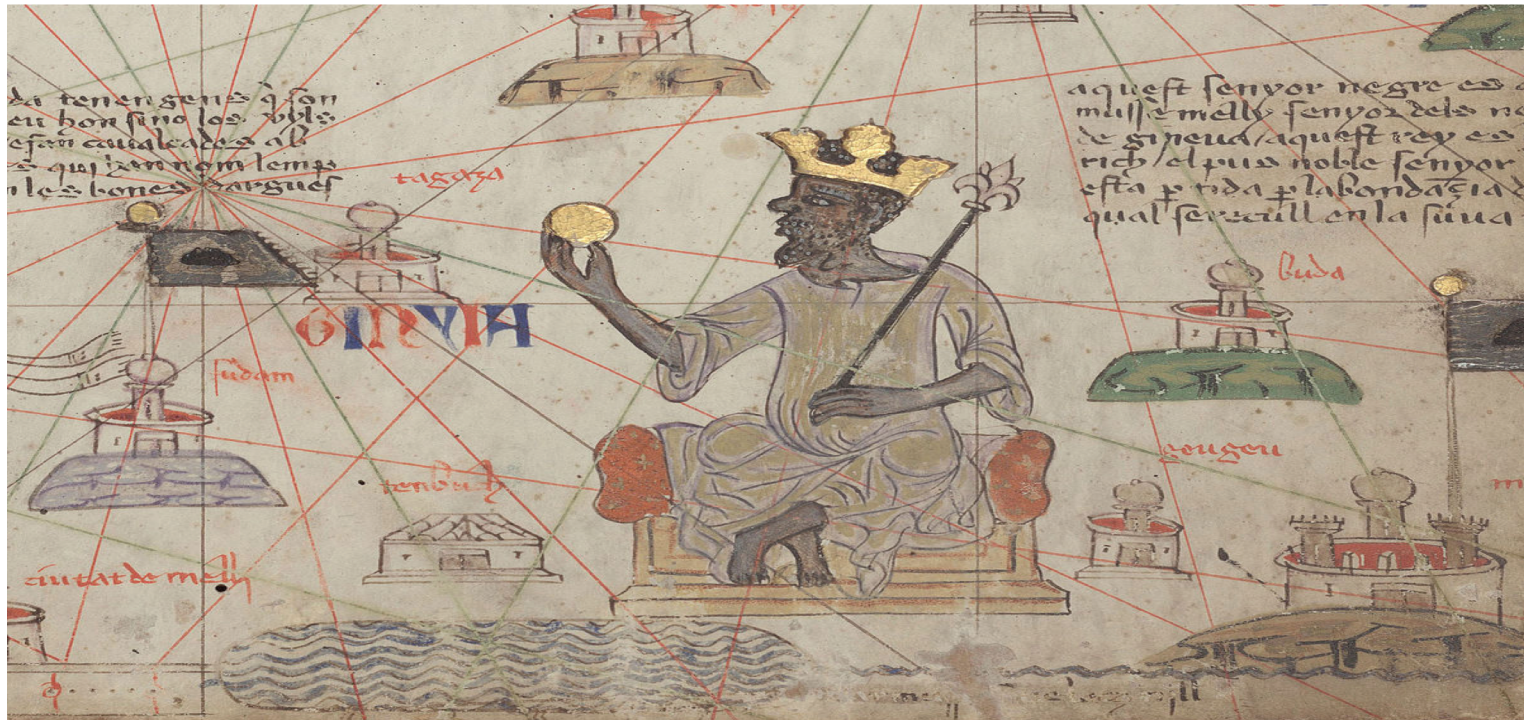 da tenen gens q̇ son
eu hon sino los uyls
e fan caualcades ab
s qui han nom lemp
n les bones dargues
tagaza
GINYIA
sudam
tenbuch
ciutat de melli
aquest senyor negre es
musse melly senyor dels ne
de gineua aquest rey es
rich el pus noble senyor
esta ptida p labondaçia d
qual serecull en la suua
buda
geugeu
m